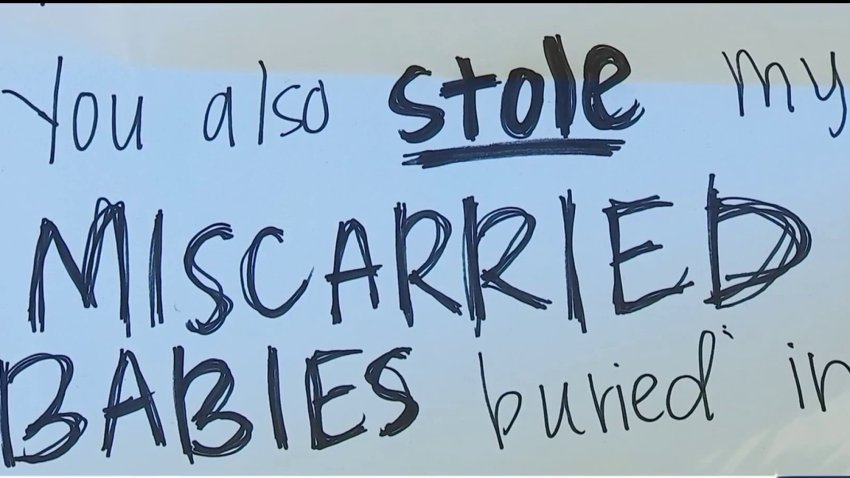 You also stole my
MISCARRIED
BABIES buried in